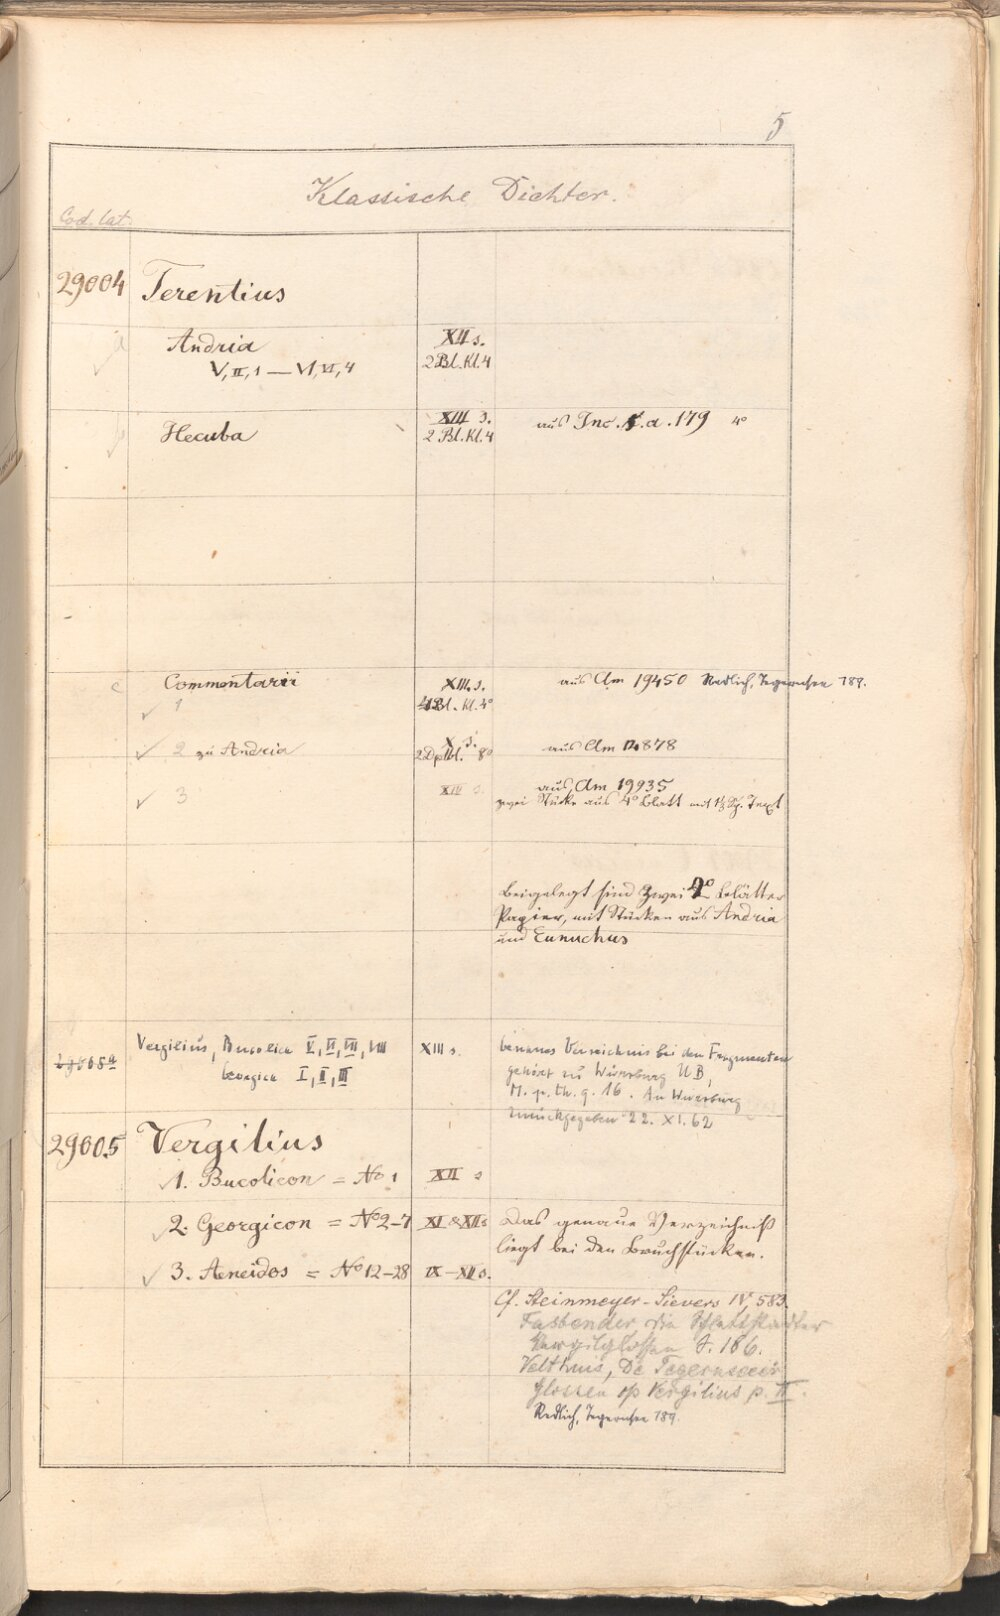 5
Klassische Dichter.
Cod. lat.
29004 Terentius
a Andria XII s.
V, II, 1 — VI, VI, 4 2 Bl. Kl. 4
b Hecuba XIII s. aus Inc. a. 179 4°
2 Bl. Kl. 4
c Commentarii XIII. s. aus Clm 19450 Redlich, Tegernsee 189.
1 Bl. Kl. 4°
2 zu Andria X s. aus Clm 14878
2 Dpbl. 8°
3 XIV s. aus Clm 19935
zwei Stücke aus 4° Blatt mit Text
Beigelegt sind zwei 4° Blätter
Papier, mit Stücken aus Andria
und Eunuchus
29005a Vergilius, Bucolica V, VI, VII, VIII XIII s. genaues Verzeichnis bei den Fragmenten
Georgica I, II, III gehört zu Würzburg UB,
M. p. th. q. 16. An Würzburg
zurückgegeben 22. XI. 62
29005 Vergilius
1. Bucolicon = No 1 XII s
2. Georgicon = No 2–7 XI & XII s Das genaue Verzeichniß
liegt bei den Bruchstücken.
3. Aeneidos = No 12–28 IX–XII s.
Cf. Steinmeyer-Sievers IV, 583.
Fasbender die Schlettstadter
Vergilglossen S. 186.
Velthuis, De Tegernseeër
glossen op Vergilius p. II.
Redlich, Tegernsee 189.